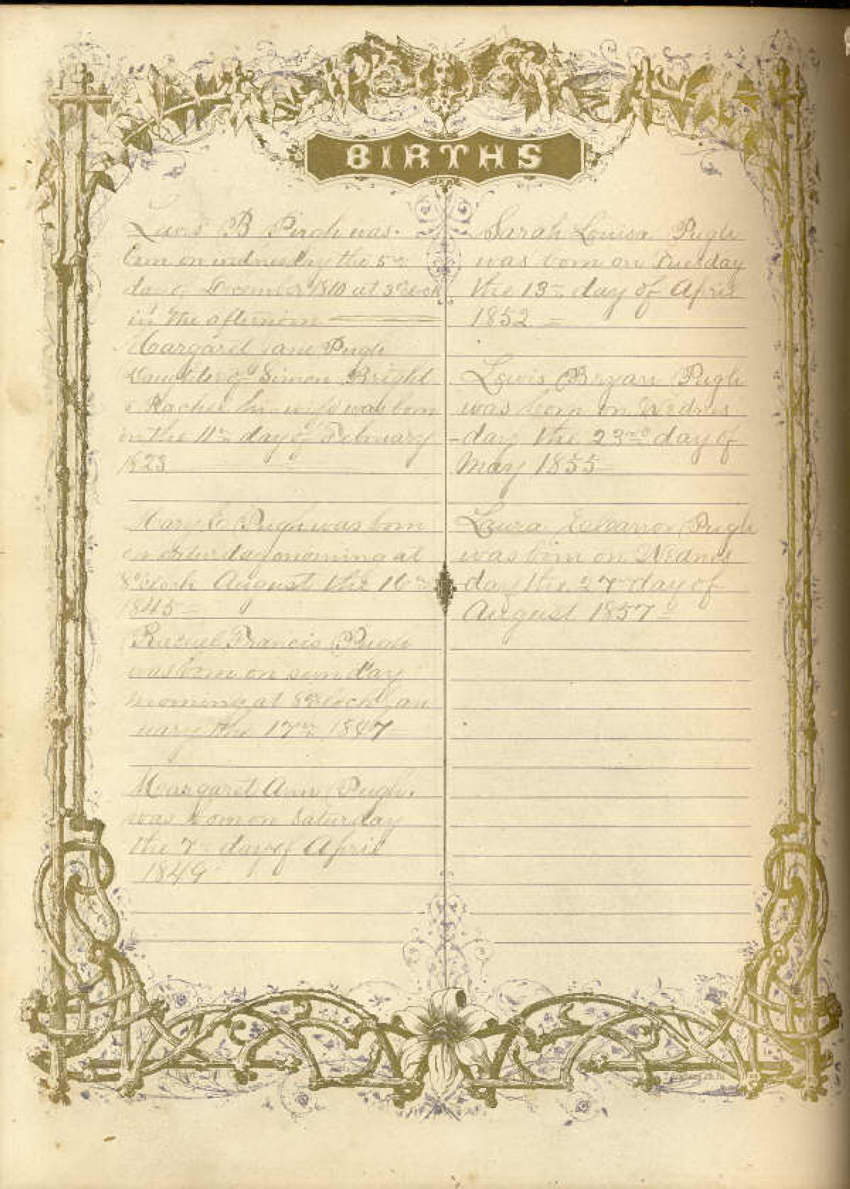 BIRTHS
Lewis B Pugh was
born on wednesday the 5th
day of December 1810 at 3 oclock
in the afternoon
Margaret Jane Pugh
Daughter of Simon Bright
& Rachel his wife was born
on the 11th day of February
1823
Mary E Pugh was born
on saturday morning at
8 oclock August the 16th
1845
Rachel Francis Pugh
was born on sunday
morning at oclock Jan
uary the 17th 1847
Margaret Ann Pugh
was born on Saturday
the 7th day of April
1849
Sarah Louisa Pugh
was born on Tuesday
the 13th day of April
1852
Lewis Bryan Pugh
was born on Wednes
-day the 23rd day of
May 1855
Laura Eleanor Pugh
was born on Wednes
day the 27th day of
August 1857